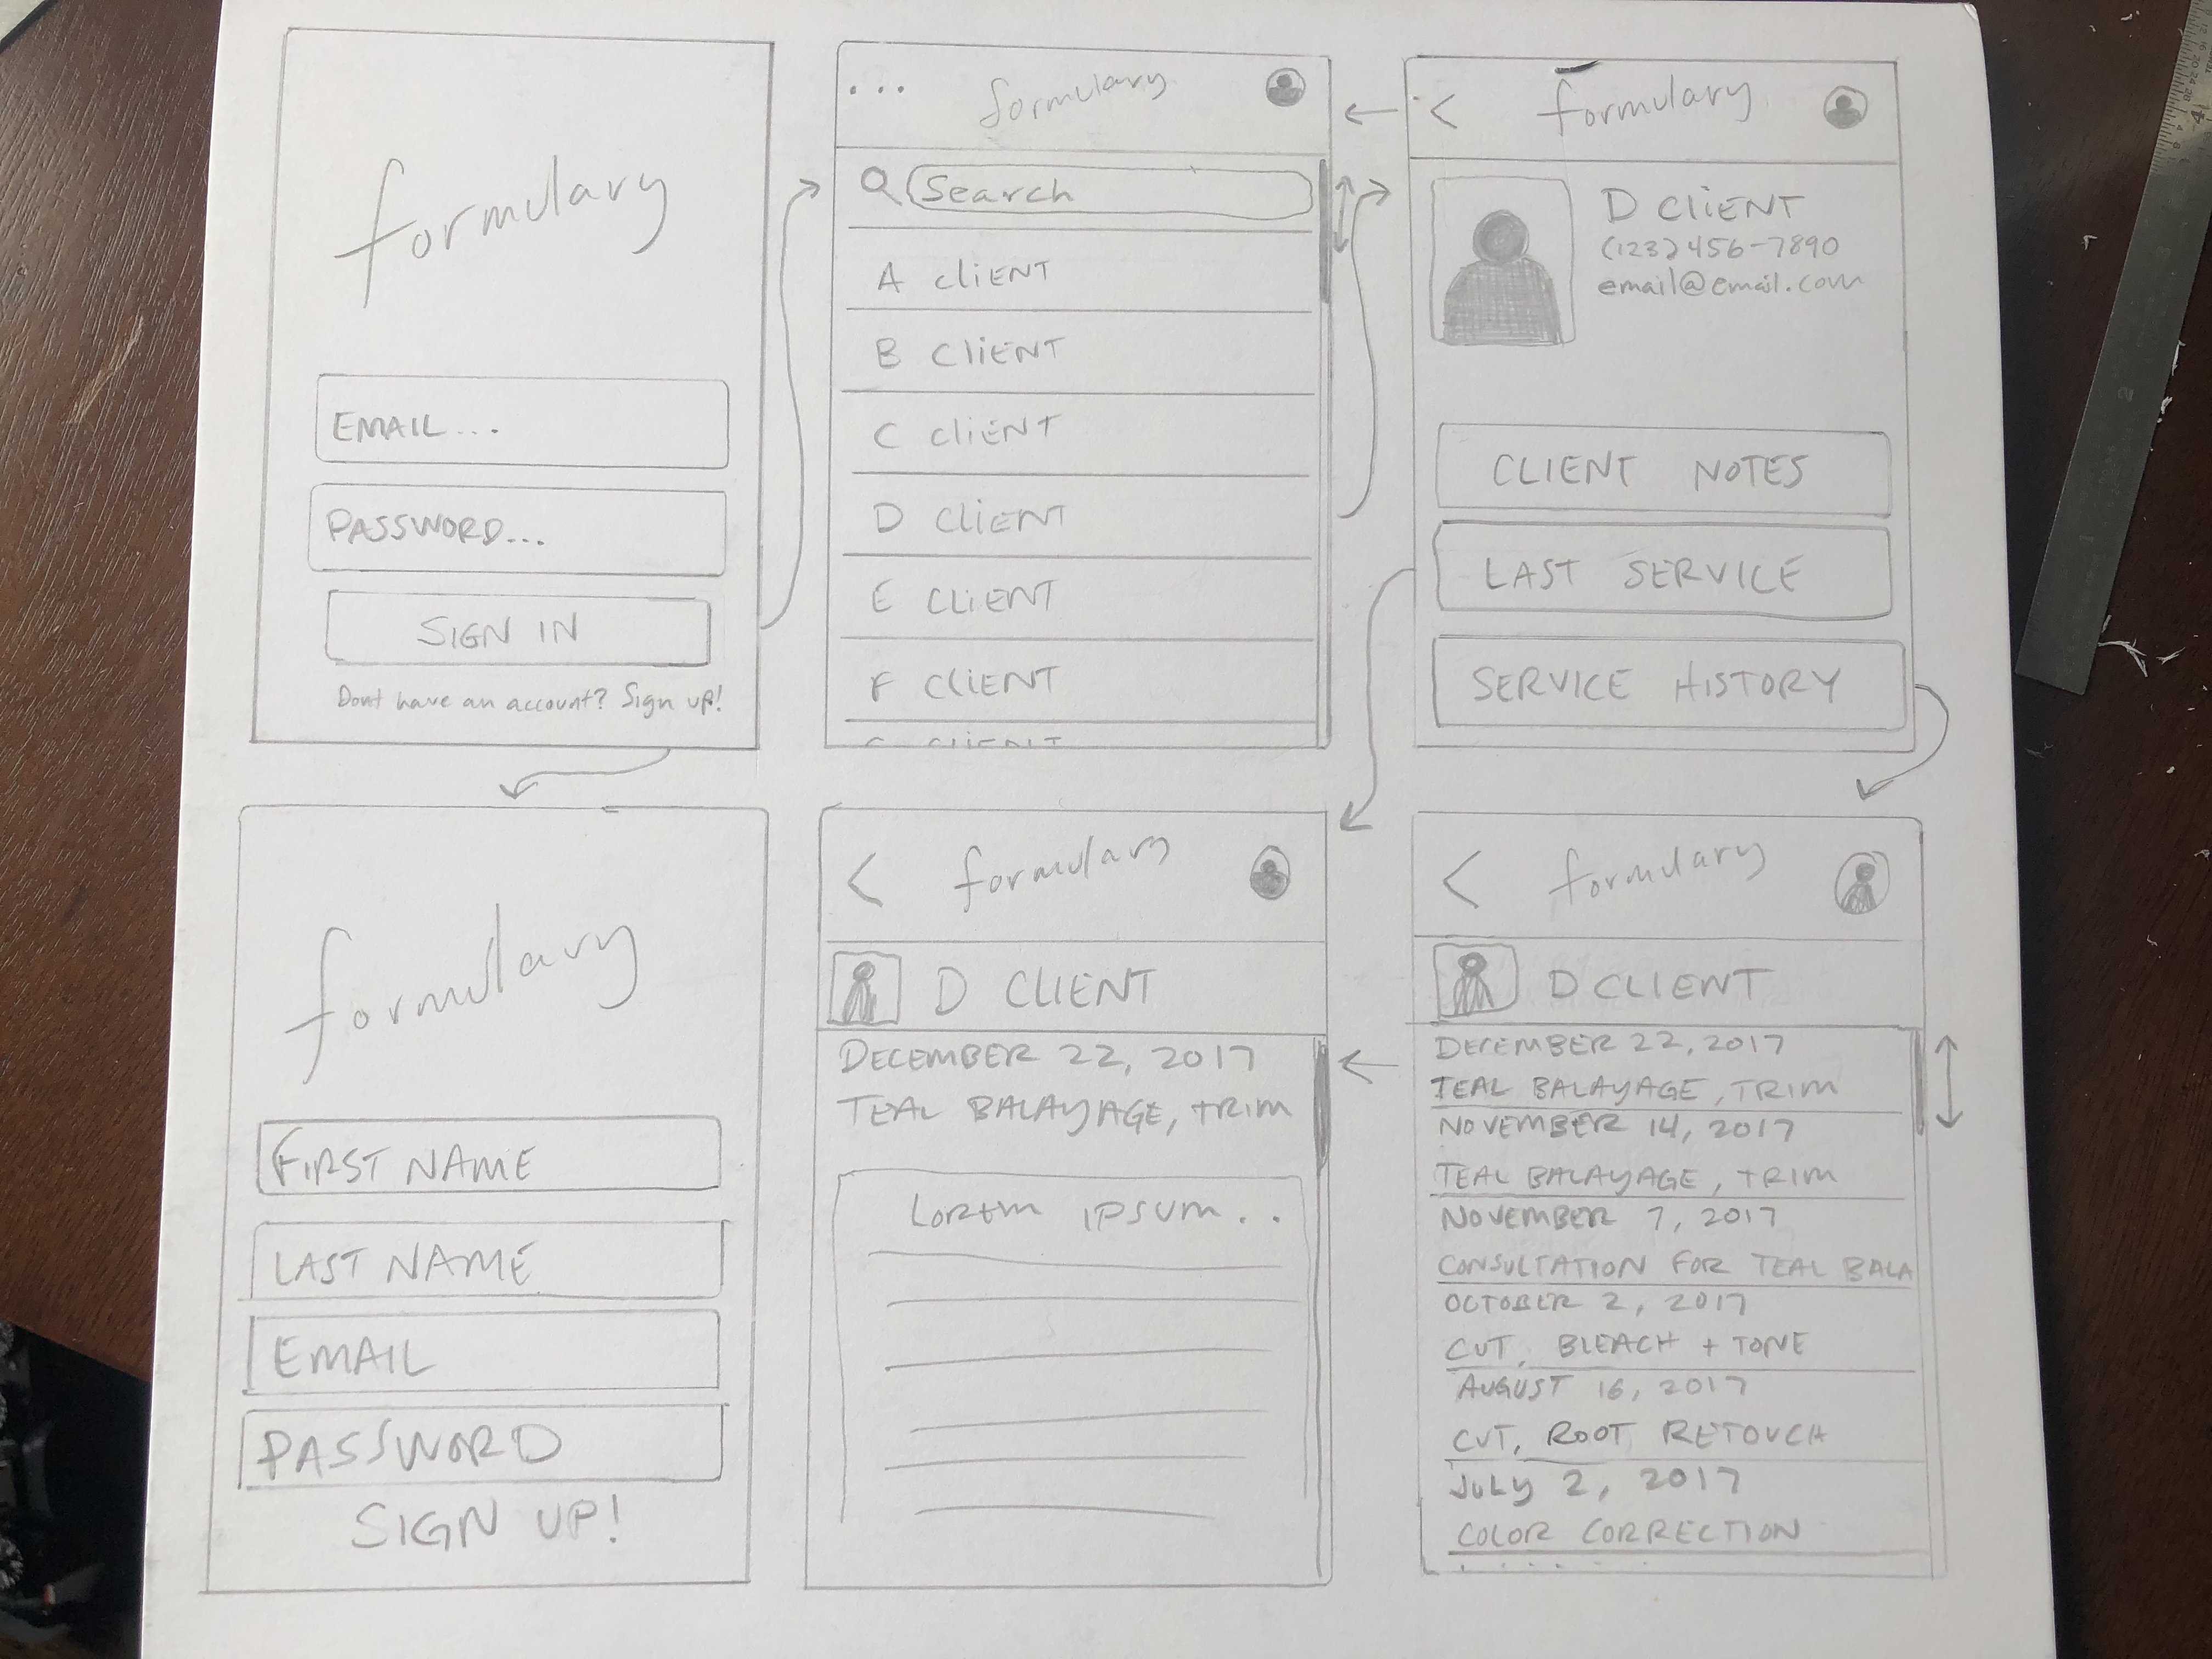 formulary
EMAIL...
PASSWORD...
SIGN IN
Dont have an account? Sign up!
... formulary
Search
A client
B client
C client
D client
E client
F client
G client
< formulary
D CLIENT
(123) 456-7890
email@email.com
CLIENT NOTES
LAST SERVICE
SERVICE HISTORY
formulary
FIRST NAME
LAST NAME
EMAIL
PASSWORD
SIGN UP!
< formulary
D CLIENT
DECEMBER 22, 2017
TEAL BALAYAGE, TRIM
LOREM IPSUM..
< formulary
D CLIENT
DECEMBER 22, 2017
TEAL BALAYAGE, TRIM
NOVEMBER 14, 2017
TEAL BALAYAGE, TRIM
NOVEMBER 7, 2017
CONSULTATION FOR TEAL BALA
OCTOBER 2, 2017
CUT, BLEACH + TONE
AUGUST 16, 2017
CUT, ROOT RETOUCH
JULY 2, 2017
COLOR CORRECTION